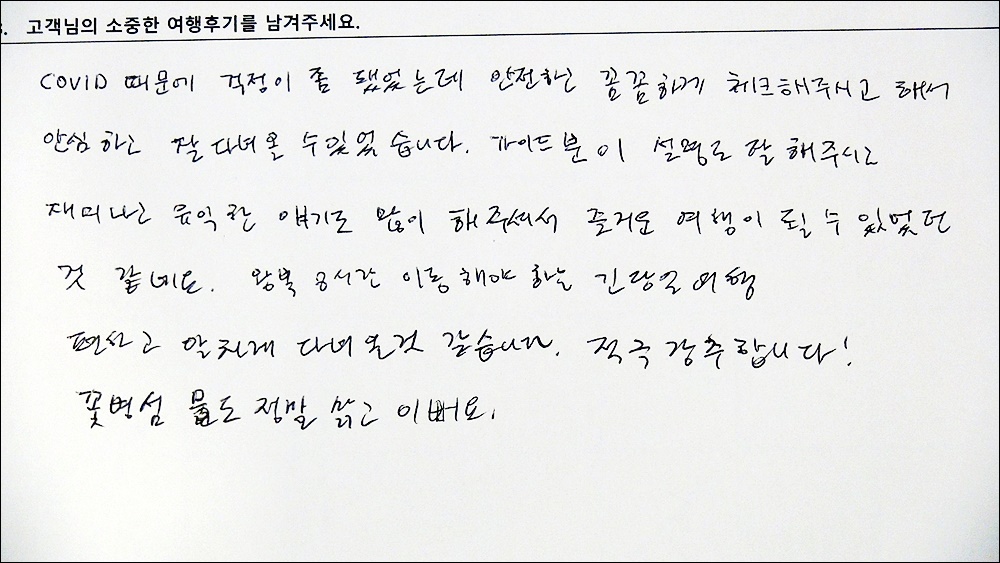 3. 고객님의 소중한 여행후기를 남겨주세요.
COVID 때문에 걱정이 좀 됐었는데 안전하고 꼼꼼하게 체크해주시고 해서
안심하고 잘 다녀올 수 있었습니다. 가이드분이 설명도 잘 해주시고
재미나고 유익한 얘기도 많이 해주셔서 즐거운 여행이 될 수 있었던
것 같네요. 왕복 8시간 이동해야 하는 긴 당일여행
편하고 알차게 다녀온것 같습니다. 적극 강추합니다!
꽃병섬 물도 정말 맑고 이뻐요.